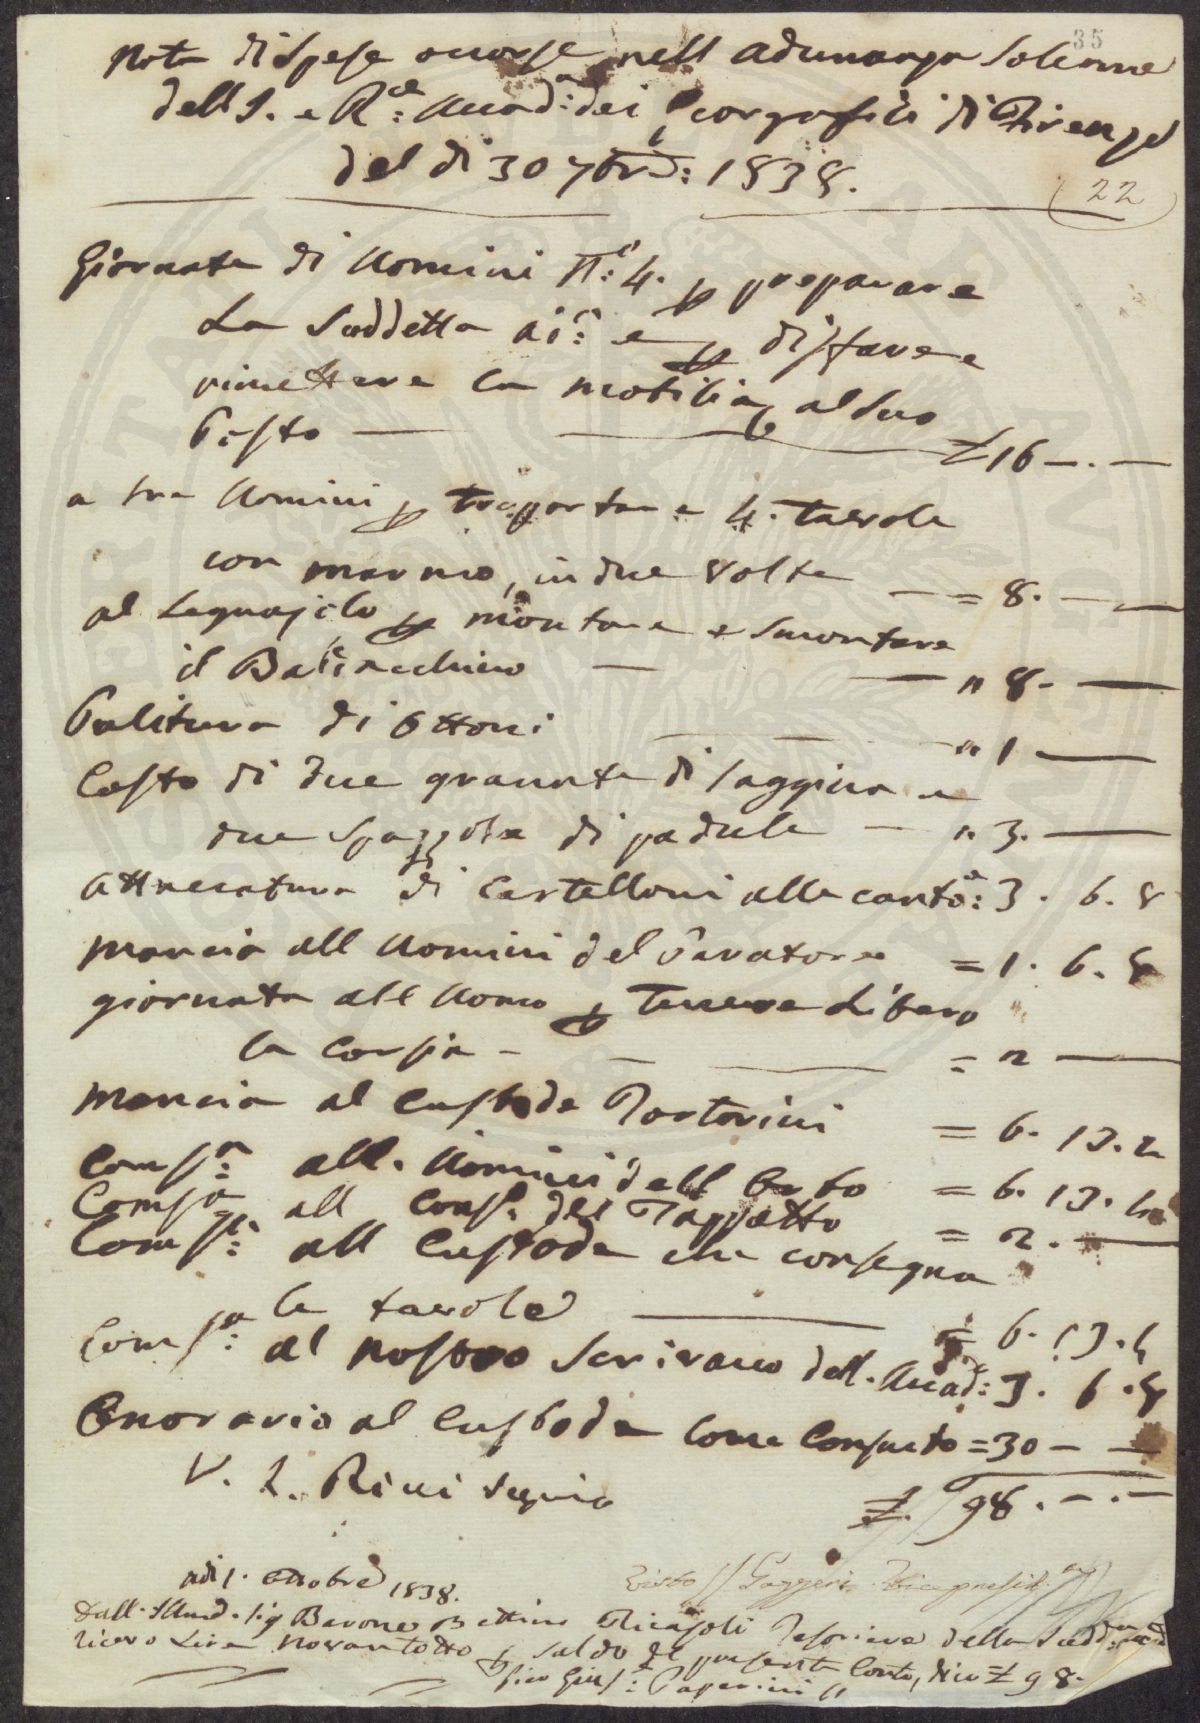 35
Nota di Spese occorse nell Adunanza Solenne
dell I. e R.le: Accad:a dei Georgofili di Firenze
del di 30 7bre: 1838.
22
Giornate di Uomini N.o: 4. p preparare
La Suddetta e p disfare e
rimettere la mobilia al Suo
Posto £ 16 — . —
a tre Uomini p trasportare 4. tavole
con marmo, in due Volte = 8. —
al Legnajolo p montare e Smontare
il Baldacchino " 8. —
Pulitura di Ottoni " 1 —
Costo di due granate di Saggina e
due Spazzole di padule — " 3. —
Attaccatura di Cartelloni alle canto:e 3. 6. 8
Mancia all Uomini del Paratore = 1. 6. 8
giornata all Uomo p Tenere Libero
la Corsia — = 2 —
Mancia al Custode Tortorini = 6. 13. 4
Coms:a all. Uomini dell Orto = 6. 13. 4
Coms:a all Cons:e del Tappeto = 2. —
Coms:a all Custode che consegna
le tavole = 6. 13. 4
Coms:a al nostro Scrivano dell. Accad:a 3. 6. 8
Onorario al Custode Come Consueto = 30 — —
V. L. Ricci Seg.rio
£. 98. — . —
Visto Gazzeri Vicepresid.te
adi 1. Ottobre 1838.
Dall. Sig Barone Bettino Ricasoli Tesoriere della Sudd:a
ricevo Lire Novantotto p saldo del presente Conto, dico £ 98.
Gius:e Paperini